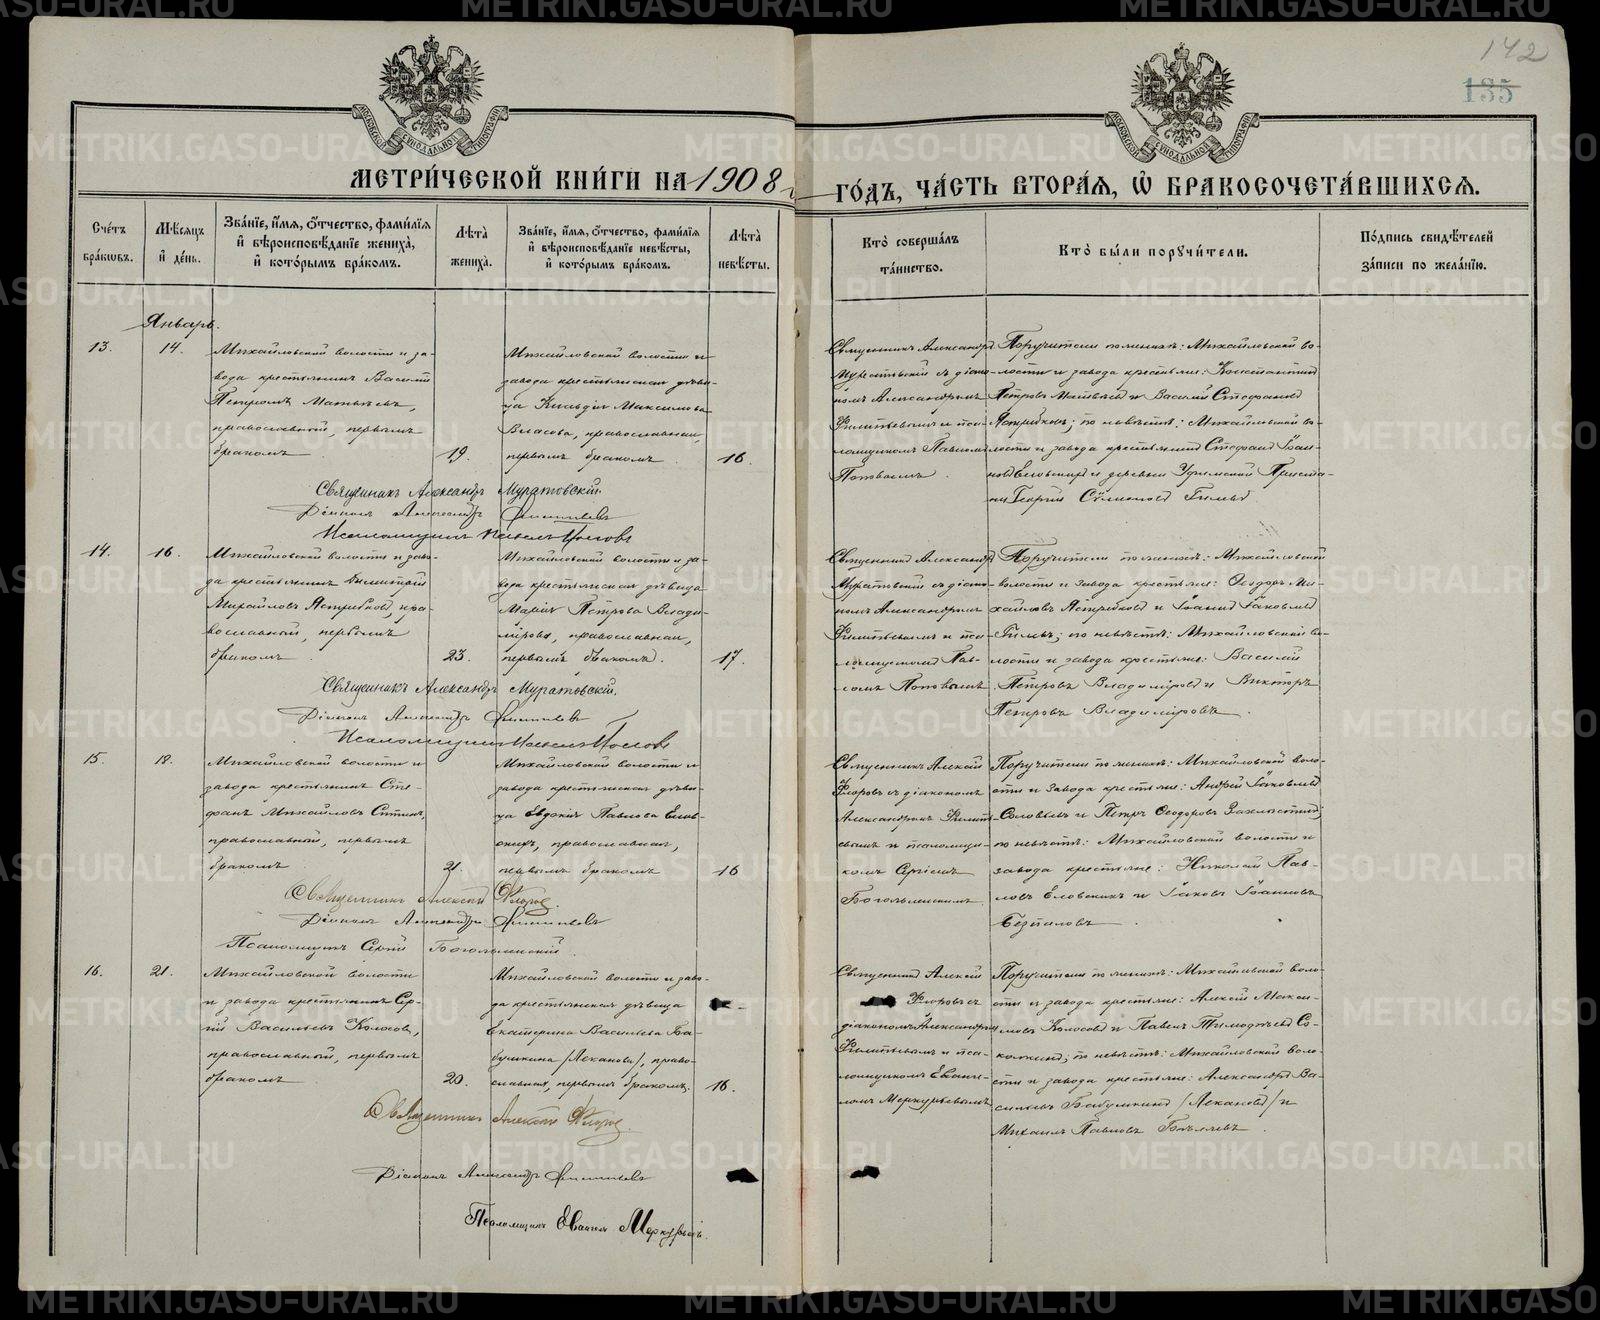 142
135
МОСКОВСКОЙ СѴНОДАЛЬНОЙ ТИПОГРАФІИ
МОСКОВСКОЙ СѴНОДАЛЬНОЙ ТИПОГРАФІИ
МЕТРИ́ЧЕСКОЙ КНИ́ГИ НА 1908 ГО́ДЪ, ЧА́СТЬ ВТОРА́Я, Ѿ БРАКОСОЧЕТА́ВШИХСЯ.
Сче́тъ бра́кѡвъ.
Мѣ́сяцъ и҆ де́нь.
Зва́нїе, и҆́мя, ѻ҆́тчество, фами́лїя и҆ вѣроисповѣ́данїе жениха̀, и҆ кото́рымъ бра́комъ.
Лѣ́та жениха̀.
Зва́нїе, и҆́мя, ѻ҆́тчество, фами́лїя и҆ вѣроисповѣ́данїе невѣ́сты, и҆ кото́рымъ бра́комъ.
Лѣ́та невѣ́сты.
Кто̀ соверша́лъ та́инство.
Кто̀ бы́ли поручи́тели.
По́дпись свидѣ́телей за́писи по жела́нїю.
Январь.
13.
14.
Михайловской волости и за-
вода крестьянинъ Василій
Петровъ Матвѣевъ,
православный, первымъ
бракомъ
19.
Михайловской волости и
завода крестьянская дѣви-
ца Максимова
Власова, православная,
первымъ бракомъ
16.
Священникъ Александръ
Муратовскій съ діако-
номъ Александромъ
Филитьевымъ и пса-
ломщикомъ Павломъ
Поповымъ
Поручители по женихѣ: Михайловской во-
лости и завода крестьяне: Константинъ
Петровъ Матвѣевъ и Василій Стефановъ
Ястребковъ; по невѣстѣ: Михайловской во-
лости и завода крестьянинъ Стефанъ Іоан-
новъ Еловскихъ и деревни Уфимской Приста-
ни Георгій
Священникъ Александръ Муратовскій.
Діаконъ Александръ Филитьевъ
Псаломщикъ Павелъ Поповъ
14.
16.
Михайловской волости и заво-
да крестьянинъ Димитрій
Михайловъ Ястребковъ, пра-
вославный, первымъ
бракомъ
23.
Михайловской волости и за-
вода крестьянская дѣвица
Марія Петрова Влади-
мірова, православная,
первымъ бракомъ.
17.
Священникъ Александръ
Муратовскій съ діако-
номъ Александромъ
Филитьевымъ и пса-
ломщикомъ Пав-
ломъ Поповымъ
Поручители по женихѣ: Михайловской
волости и завода крестьяне: Ѳеодоръ Ми-
хайловъ Ястребковъ и Іоаннъ Іаковлевъ
по невѣстѣ: Михайловской во-
лости и завода крестьяне: Василій
Петровъ Владиміровъ и Викторъ
Петровъ Владиміровъ.
Священникъ Александръ Муратовскій.
Діаконъ Александръ Филитьевъ
Псаломщикъ Павелъ Поповъ
15.
18.
Михайловской волости и
завода крестьянинъ Сте-
фанъ Михайловъ
православный, первымъ
бракомъ
21.
Михайловской волости и
завода крестьянская дѣви-
ца Евдокія Павлова Елов-
скихъ, православная,
первымъ бракомъ
16
Священникъ Алексій
Флоровъ съ діакономъ
Александромъ Филить-
евымъ и псаломщи-
комъ Сергіемъ
Богомольскимъ.
Поручители по женихѣ: Михайловской воло-
сти и завода крестьяне: Андрей Іаковлевъ
Соловьевъ и Петръ Ѳеодоровъ
по невѣстѣ: Михайловской волости и
завода крестьяне: Николай Пав-
ловъ Еловскихъ и Іаковъ Іоанновъ
Безпаловъ.
Священникъ Алексій Флоровъ.
Діаконъ Александръ Филитьевъ
Псаломщикъ Сергій
16.
21.
Михайловской волости
и завода крестьянинъ Сер-
гій Васильевъ Колосовъ,
православный, первымъ
бракомъ
20.
Михайловской волости и заво-
да крестьянская дѣвица
Екатерина Васильева Ба-
бушкина /Леканова/, право-
славная, первымъ бракомъ.
16.
Священникъ Алексій
Флоровъ съ
діакономъ Александромъ
Филитьевымъ и пса-
ломщикомъ
Меркурьевымъ
Поручители по женихѣ: Михайловской воло-
сти и завода крестьяне: Алексій Макси-
мовъ Колосовъ и Павелъ Тимоѳеевъ Со-
по невѣстѣ: Михайловской воло-
сти и завода крестьяне: Александръ Ва-
сильевъ Бабушкинъ /Лекановъ/ и
Михаилъ Павловъ
Священникъ Алексій Флоровъ.
Діаконъ Александръ Филитьевъ
Псаломщикъ Меркурьевъ.
METRIKI.GASO-URAL.RU